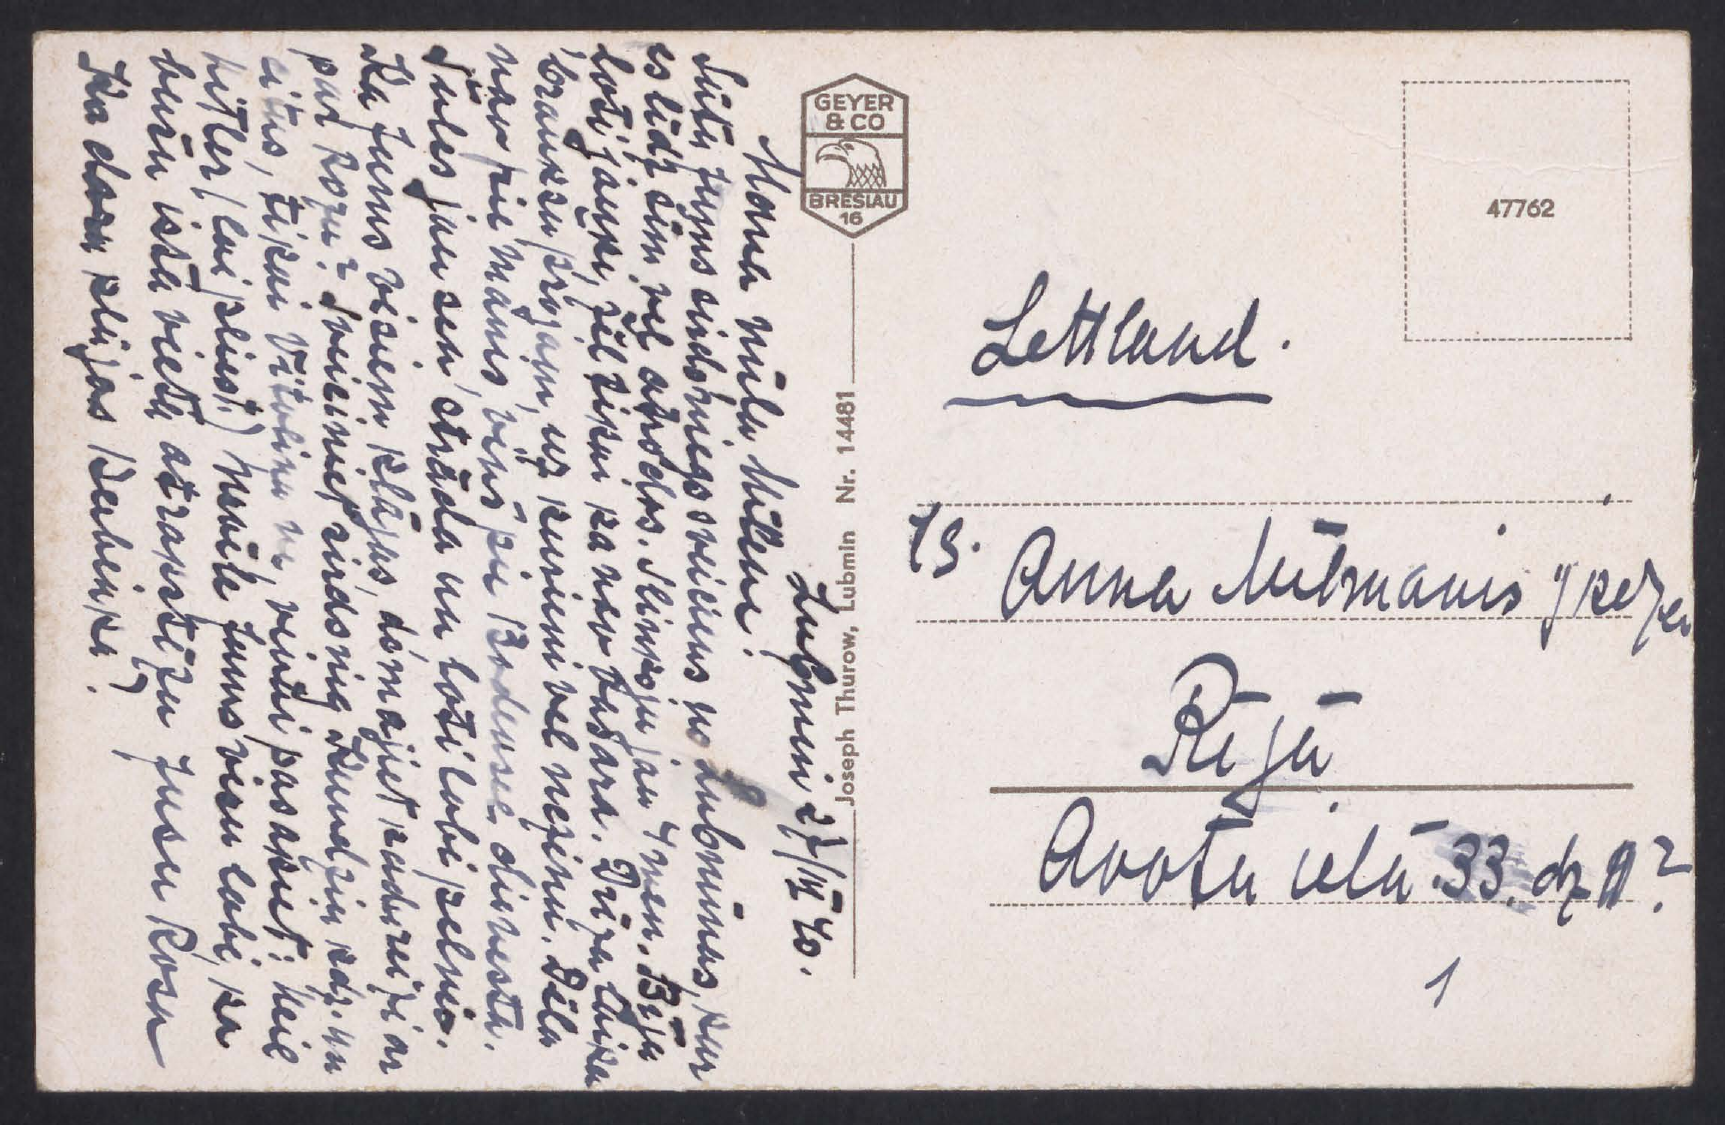 Lubmini 27/IV 40.
Mana mīļa Milda!
Sūtu Jums sirdsnīgs sveiciens no Lubmīnas, kur
es līdz šim vēl atrodos. Slimoju jau 4 mēn. Biju
loti jauki, žēl tikai ka nav vasara. Drīzā laikā
braukšu projam, uz kurieni vel nezinu. Dēls
nav pie manis, viņš pie Bodensee dienesta.
Jūles jau sen strāda un loti labi pelnia.
Ka Jums visiem klājas, domajiet kadureizi ar
par Rozu? Sveiciniet sirdsnig Kundziņ kdz. un
citus, tikai Vītoliņa ne, viņai pasakiet: Heil
hitler (lai plīst!) Novēlu Jums visu labu, ka
buru citā vietā atrakstīšu Jusu Rosa
Ka dārg klājas Benbenķi?
GEYER
& CO
BRESLAU
16
Joseph Thurow, Lubmin Nr. 14481
47762
Lettland.
Is. Anna Milmanis
Rīgā
Avotu ielā 33. dz
1